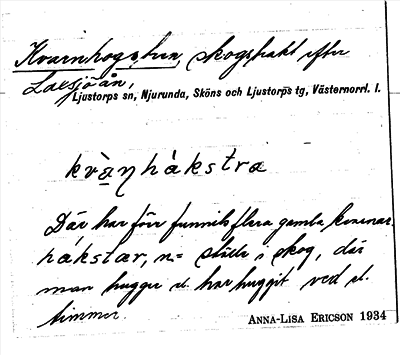 Kvarnhogstran, skogstrakt efter
Laxsjöån,
Ljustorps sn, Njurunda, Sköns och Ljustorps tg, Västernorrl. l.
kvànhàkstra
Där har förr funnits flera gamla kvarnar.
håkstar, n = ställe i skog, där
man hugger el. har huggit ved el.
timmer.
ANNA-LISA ERICSON 1934